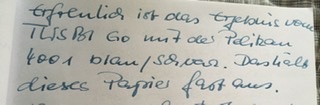 Erfreulich ist das Ergebnis vom
TWSBI Go mit der Pelikan
4001 blau/schwarz. Das hält
dieses Papier fast aus.